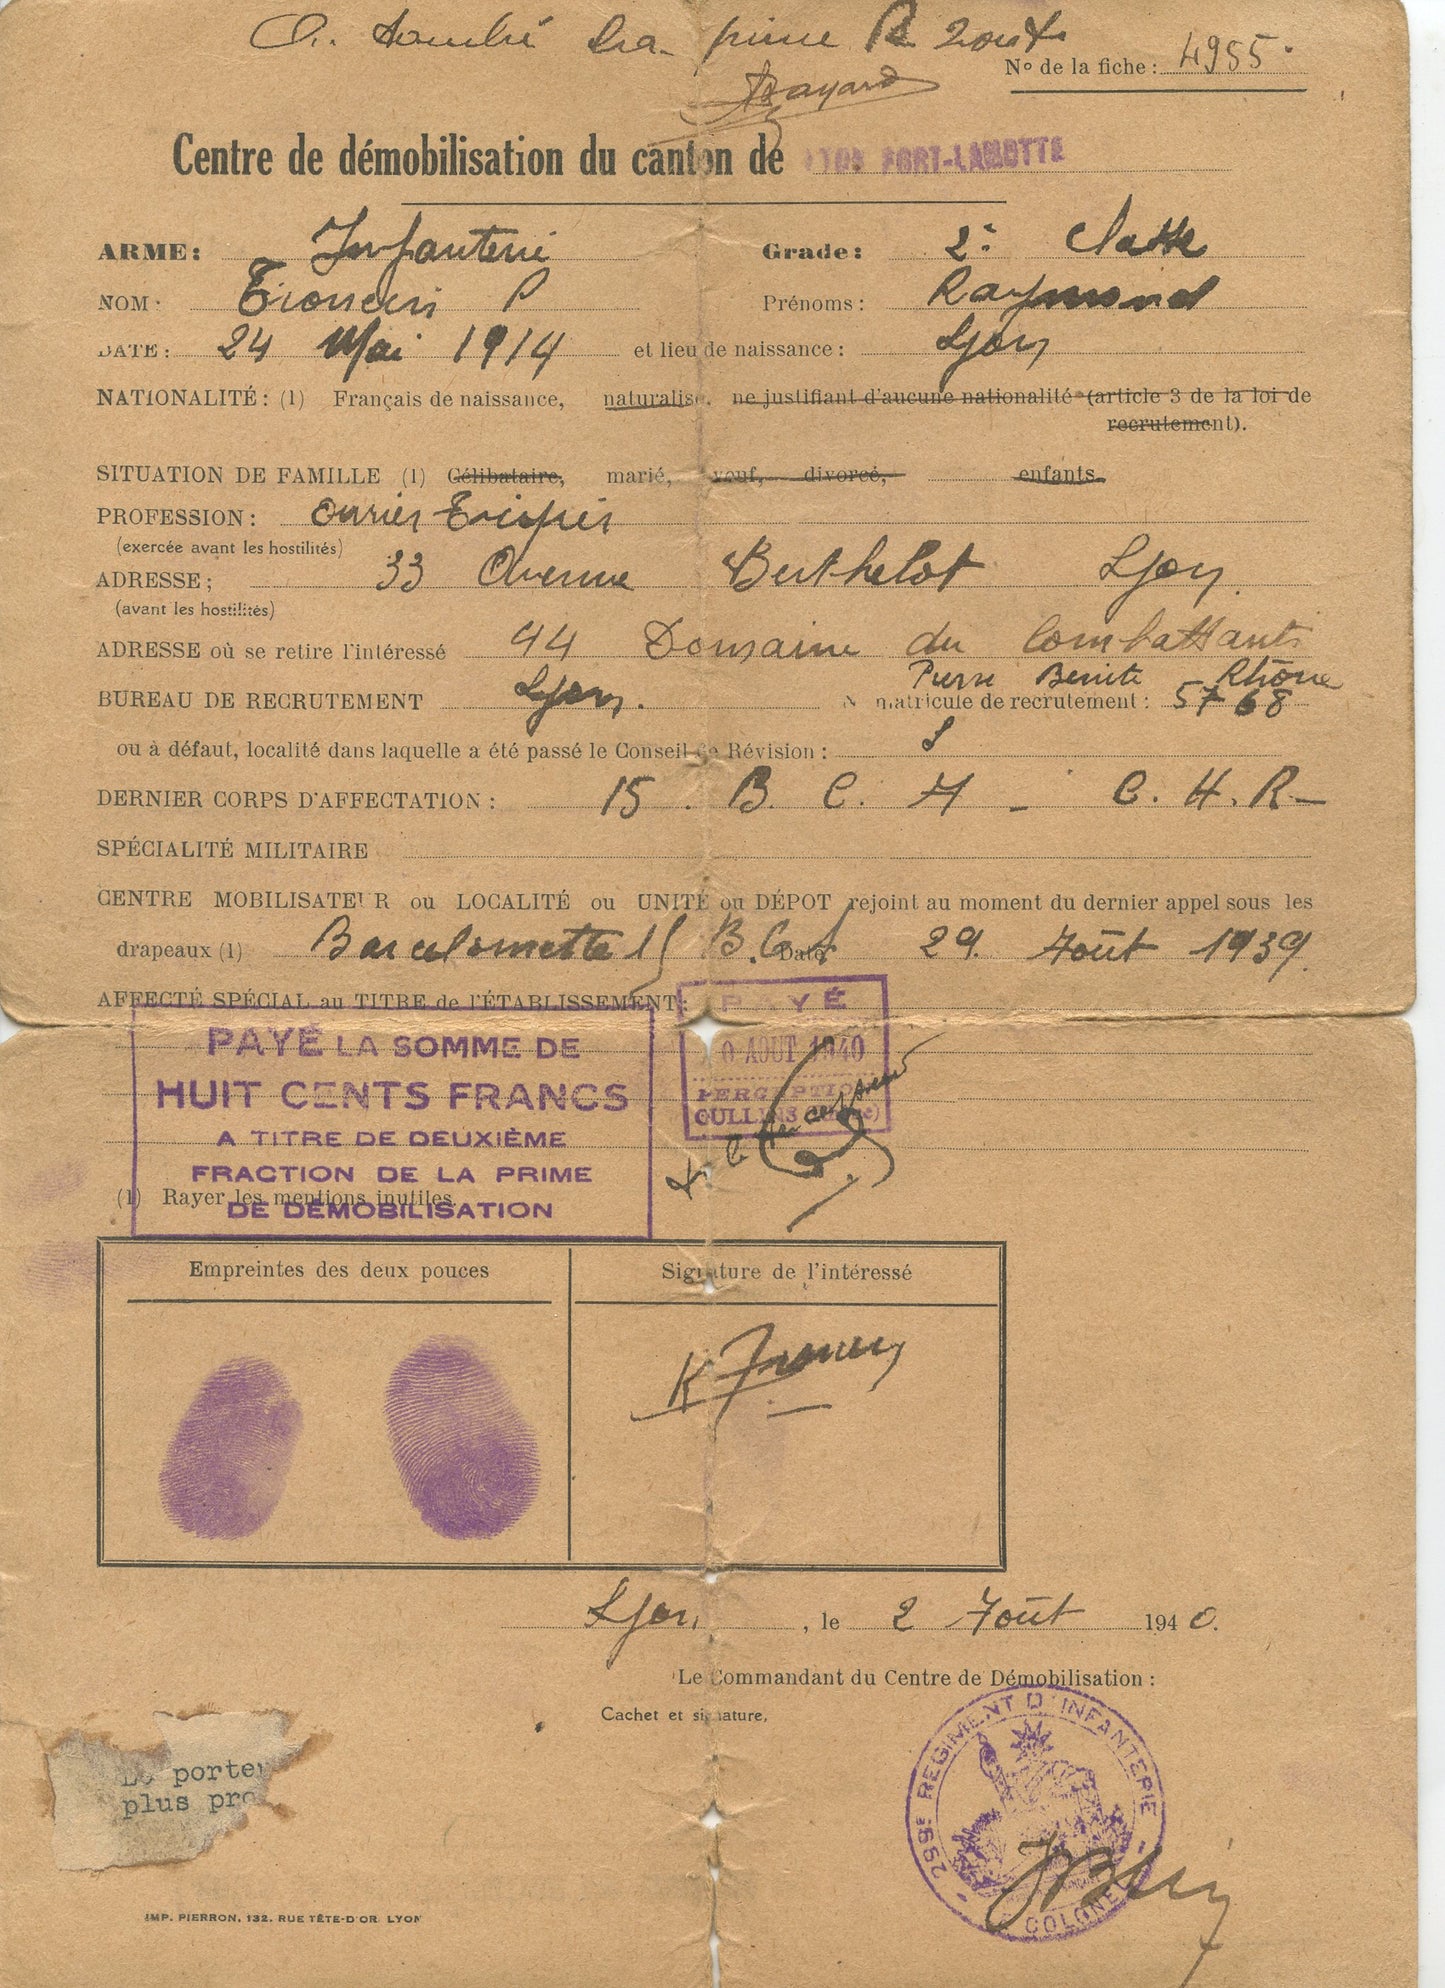 A. touché la prime de 200 f
Bayard
N° de la fiche : 4955
Centre de démobilisation du canton de LYON FORT-LAMOTTE
ARME : Infanterie Grade : 2e classe
NOM : P Prénoms : Raymond
DATE : 24 Mai 1914 et lieu de naissance : Lyon
NATIONALITÉ : (1) Français de naissance, naturalisé, ne justifiant d'aucune nationalité (article 3 de la loi de
recrutement).
SITUATION DE FAMILLE (1) Célibataire, marié, veuf, divorcé, enfants.
PROFESSION : Ouvrier
(exercée avant les hostilités)
ADRESSE : 33 Avenue Berthelot Lyon
(avant les hostilités)
ADRESSE où se retire l'intéressé 44 Domaine du Combattant
Pierre Benite Rhône
BUREAU DE RECRUTEMENT Lyon. N matricule de recrutement : 5768
ou à défaut, localité dans laquelle a été passé le Conseil de Révision :
DERNIER CORPS D'AFFECTATION : 15. B. C. A - C. H. R-
SPÉCIALITÉ MILITAIRE
CENTRE MOBILISATEUR ou LOCALITÉ ou UNITÉ ou DÉPOT rejoint au moment du dernier appel sous les
drapeaux (1) Barcelonnette 15 B.C.A Date 29. Août 1939.
AFFECTÉ SPÉCIAL au TITRE de l'ÉTABLISSEMENT :
PAYÉ LA SOMME DE
HUIT CENTS FRANCS
A TITRE DE DEUXIÈME
FRACTION DE LA PRIME
DE DÉMOBILISATION
PAYÉ
0 AOUT 1940
PERCEPTION
OULLINS (Rhône)
(1) Rayer les mentions inutiles.
Empreintes des deux pouces
Signature de l'intéressé
Lyon, le 2 Août 1940.
Le Commandant du Centre de Démobilisation :
Cachet et signature,
299e REGIMENT D'INFANTERIE
COLONEL
Le porteu
plus pro
IMP. PIERRON, 132, RUE TÊTE-D'OR LYON